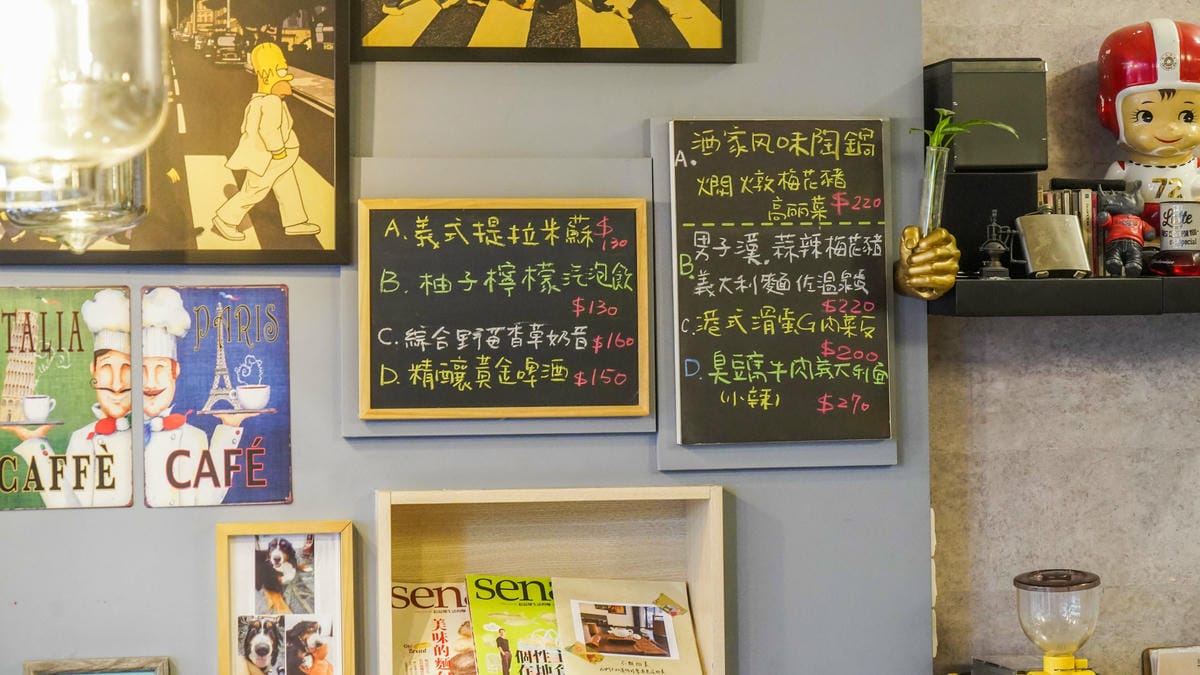 TALIA
CAFFÈ
PARIS
CAFÉ
A. 義式提拉米蘇 $130
B. 柚子檸檬汽泡飲
$130
C. 綜合野莓香草奶昔 $160
D. 精釀黃金啤酒 $150
A. 酒家风味陶鍋
燜燉梅花豬
高丽菜 $220
B. 男子漢。蒜辣梅花豬
義大利麵佐溫泉
$220
C. 港式滑蛋G肉菜反
$200
D. 臭豆腐牛肉義大利面
(小辣) $270
72
Latte
Special
sen
美味的麵
sen
個性主
在地